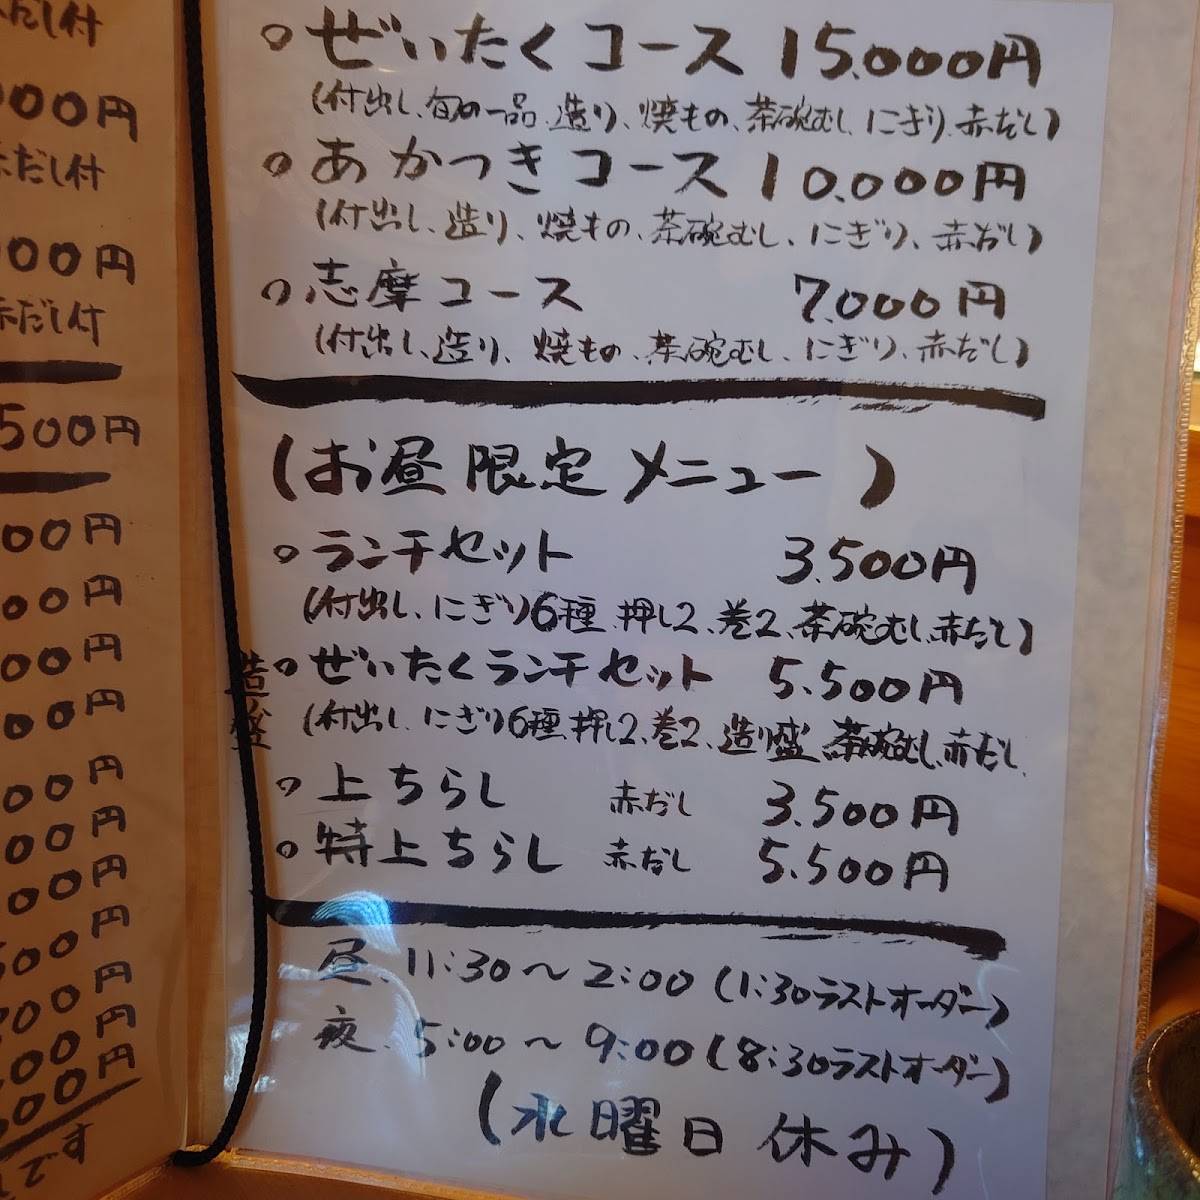 だし付
000円
だし付
00円
赤だし付
500円
00円
00円
00円
00円
00円
00円
00円
500円
00円
00円
500円
です
○ぜいたくコース 15.000円
(付出し、旬の一品、造り、焼もの、茶碗むし、にぎり、赤だし)
○あかつきコース 10.000円
(付出し、造り、焼もの、茶碗むし、にぎり、赤だし)
○志摩コース 7.000円
(付出し、造り、焼もの、茶碗むし、にぎり、赤だし)
(お昼限定メニュー)
○ランチセット 3.500円
(付出し、にぎり6種、押し2、巻2、茶碗むし、赤だし)
造り盛
○ぜいたくランチセット 5.500円
(付出し、にぎり6種、押し2、巻2、造り盛、茶碗むし、赤だし、
○上ちらし 赤だし 3.500円
○特上ちらし 赤だし 5.500円
昼、11:30〜2:00(1:30ラストオーダー)
夜、5:00〜9:00(8:30ラストオーダー)
(水曜日休み)